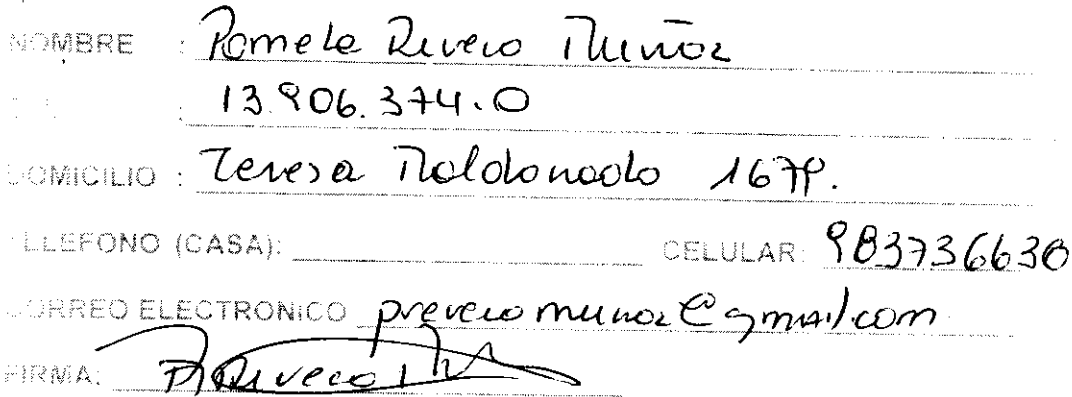 NOMBRE : Pamela Rivera Muñoz
: 13.906.374.0
DOMICILIO : Teresa Maldonado 1679.
TELEFONO (CASA): CELULAR: 983736630
CORREO ELECTRONICO priveramunoz@gmail.com
FIRMA: PRivera M